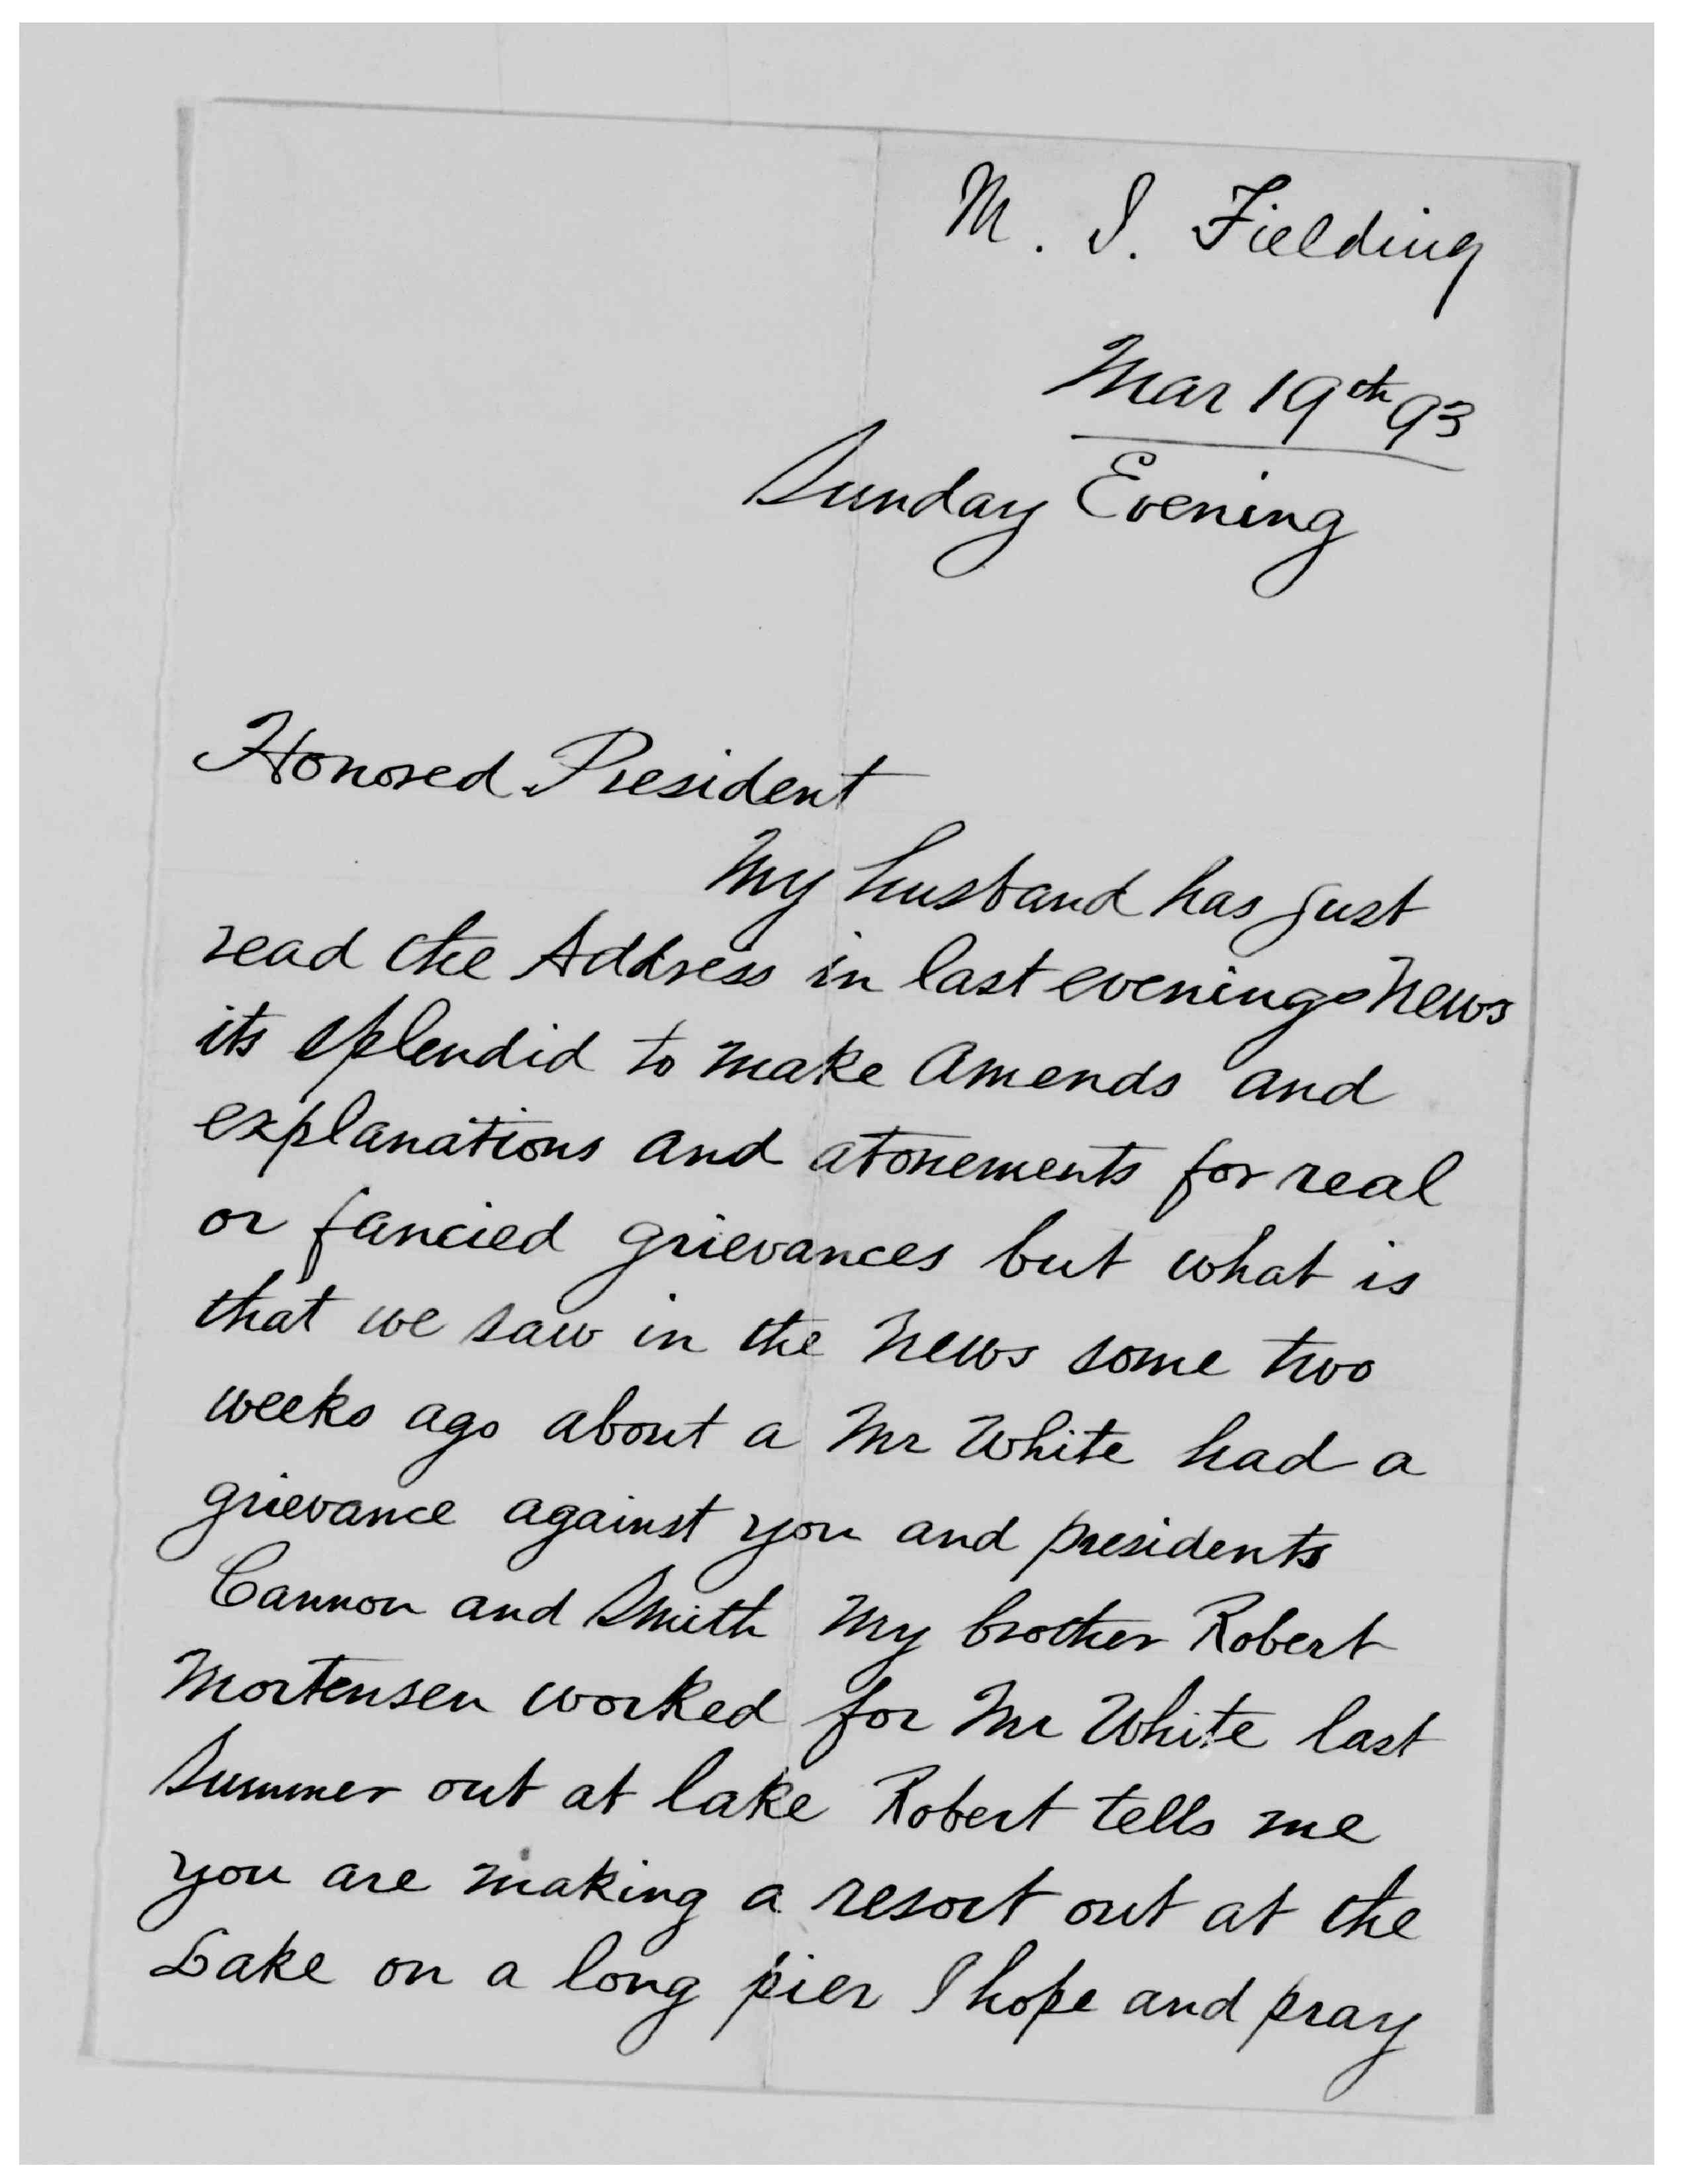 M. I. Fielding
Mar 19th 93
Sunday Evening
Honored President
My husband has just
read the Address in last evenings News
its splendid to make Amends and
explanations and atonements for real
or fancied grievances but what is
that we saw in the News some two
weeks ago about a Mr White had a
grievance against you and presidents
Cannon and Smith My brother Robert
Mortensen worked for Mr White last
Summer out at lake Robert tells me
you are making a resort out at the
Lake on a long pier I hope and pray